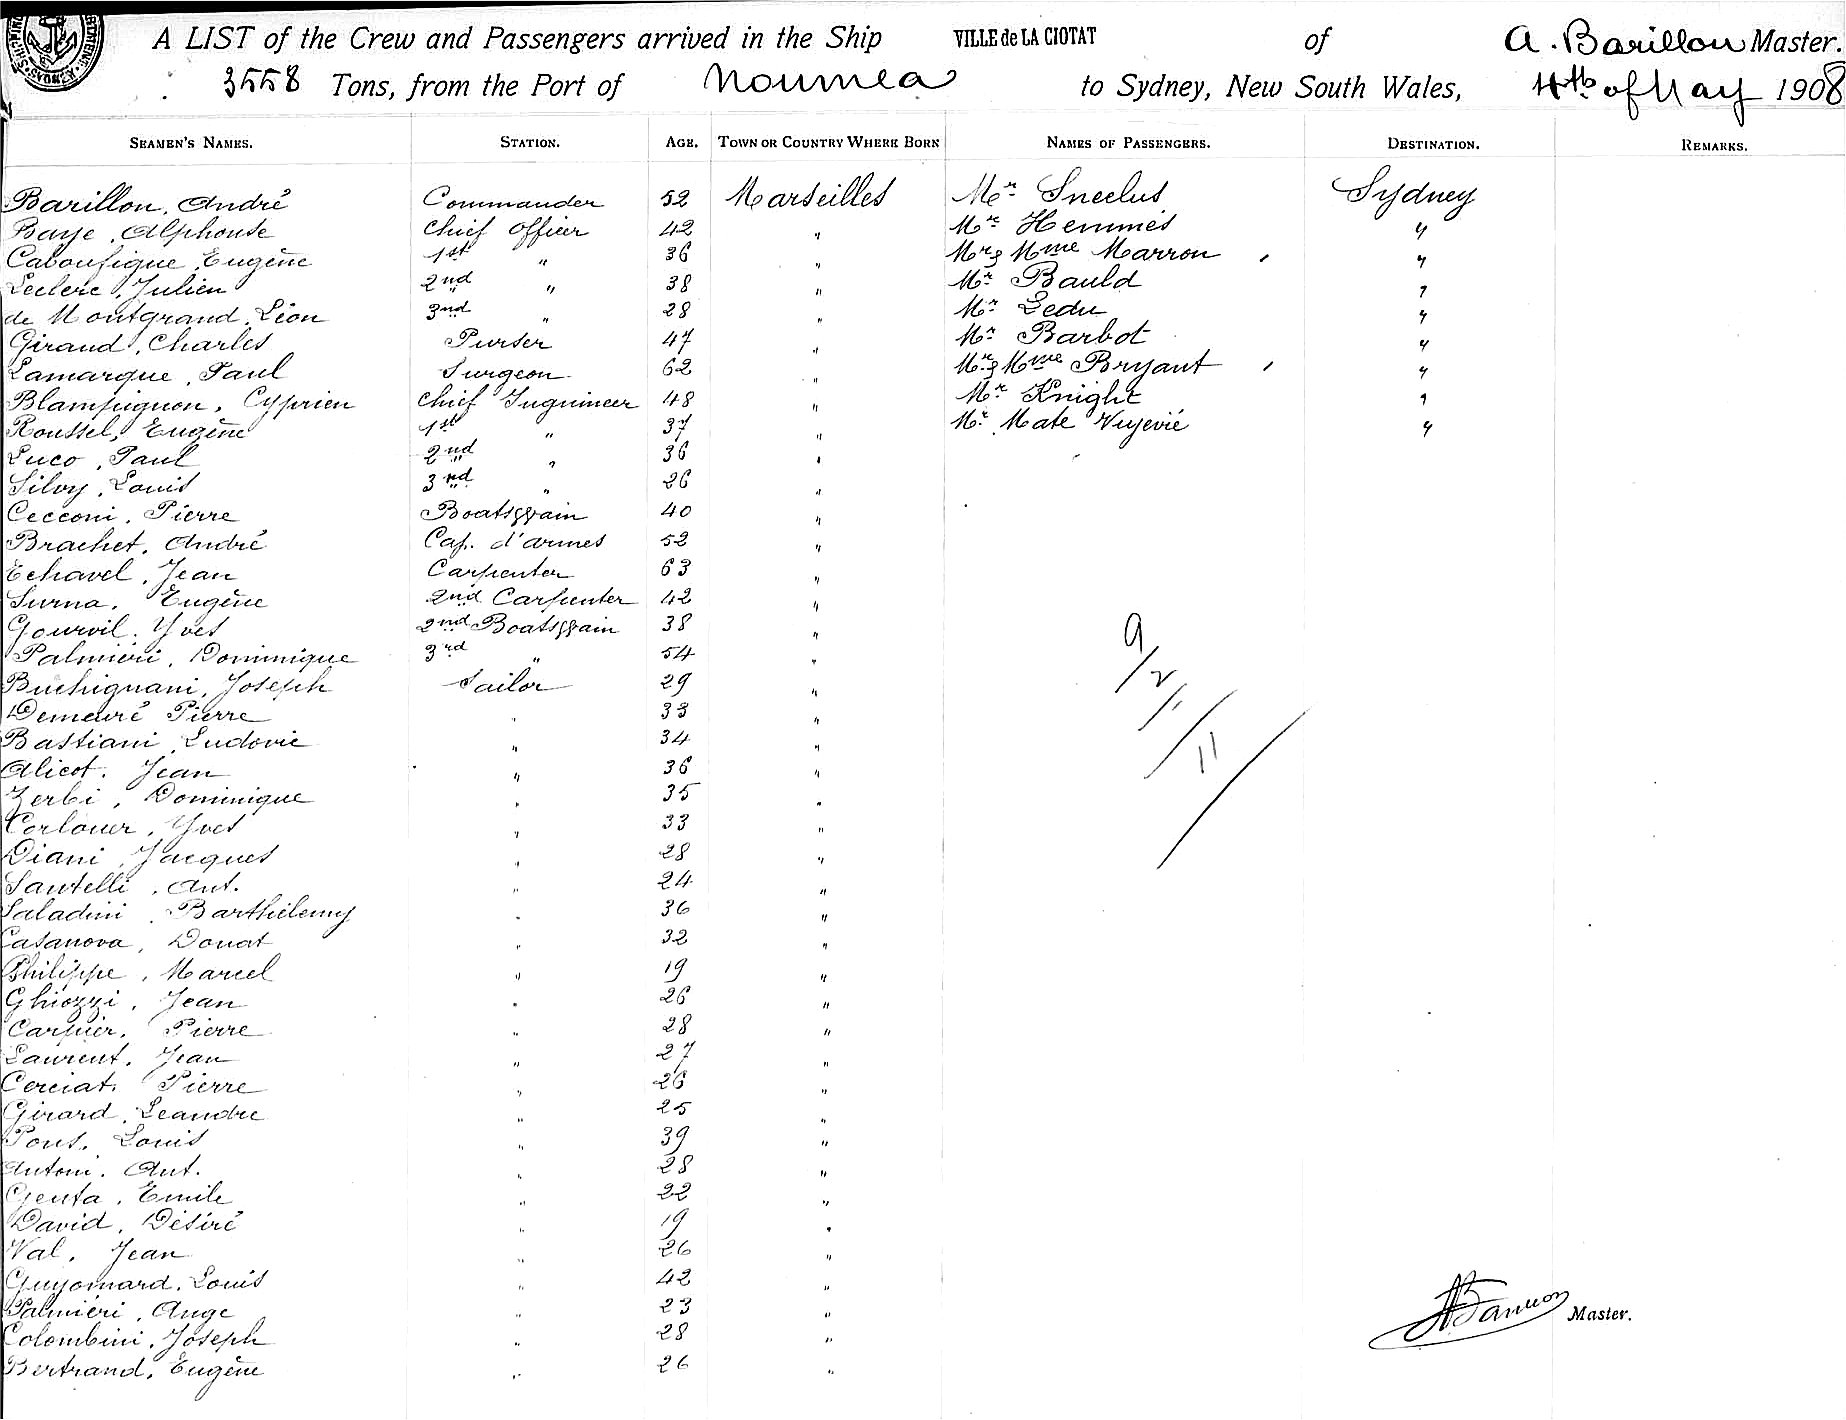 A LIST of the Crew and Passengers arrived in the Ship VILLE de LA CIOTAT of A. Barillon Master.
3558 Tons, from the Port of Noumea to Sydney, New South Wales, 4th of May 1908
SEAMEN'S NAMES. STATION. AGE. TOWN OR COUNTRY WHERE BORN NAMES OF PASSENGERS. DESTINATION. REMARKS.
Barillon, André Commander 52 Marseilles Mr. Sneclus Sydney
Baye, Alphonse Chief Officer 42 " Mr. Hemmes "
Caboufigue, Eugène 1st " 36 " Mr & Mme Marron "
Leclerc, Julien 2nd " 38 " Mr. Bauld "
de Montgrand, Léon 3nd " 28 " Mr. Ledu "
Giraud, Charles Purser 47 " Mr. Barbot "
Lamarque, Paul Surgeon 62 " Mr & Mme Bryant "
Blampignon, Cyprien Chief Inguineer 48 " Mr. Knight "
Roussel, Eugène 1st " 37 " Mr. Mate Vujevié "
Luco, Paul 2nd " 36 "
Silvy, Louis 3nd " 26 "
Cecconi, Pierre Boatswain 40 "
Brachet, André Cap. d'armes 52 "
Echavel, Jean Carpenter 63 "
Surna, Eugène 2nd Carpenter 42 "
Gourvil, Yves 2nd Boatswain 38 "
Palmiéri, Dominique 3rd " 54 "
Buchignani, Joseph Sailor 29 "
Demeuré Pierre " 33 "
Bastiani, Ludovic " 34 "
Alicot, Jean " 36 "
Zerbi, Dominique " 35 "
Corlouer, Yves " 33 "
Diani, Jacques " 28 "
Santelli, Ant. " 24 "
Saladini, Barthélemy " 36 "
Casanova, Donat " 32 "
Philippe, Marcel " 19 "
Ghiozzi, Jean " 26 "
Carpier, Pierre " 28 "
Laurent, Jean " 27 "
Cerciat, Pierre " 26 "
Girard, Leandre " 25 "
Pons, Louis " 39 "
Antoni, Ant. " 28 "
Genta, Emile " 22 "
David, Désiré " 19 "
Val, Jean " 26 "
Guyomard, Louis " 42 "
Palmiéri, Ange " 23 "
Colombini, Joseph " 28 "
Bertrand, Eugène " 26 "
9/2/11
ABarillon Master.